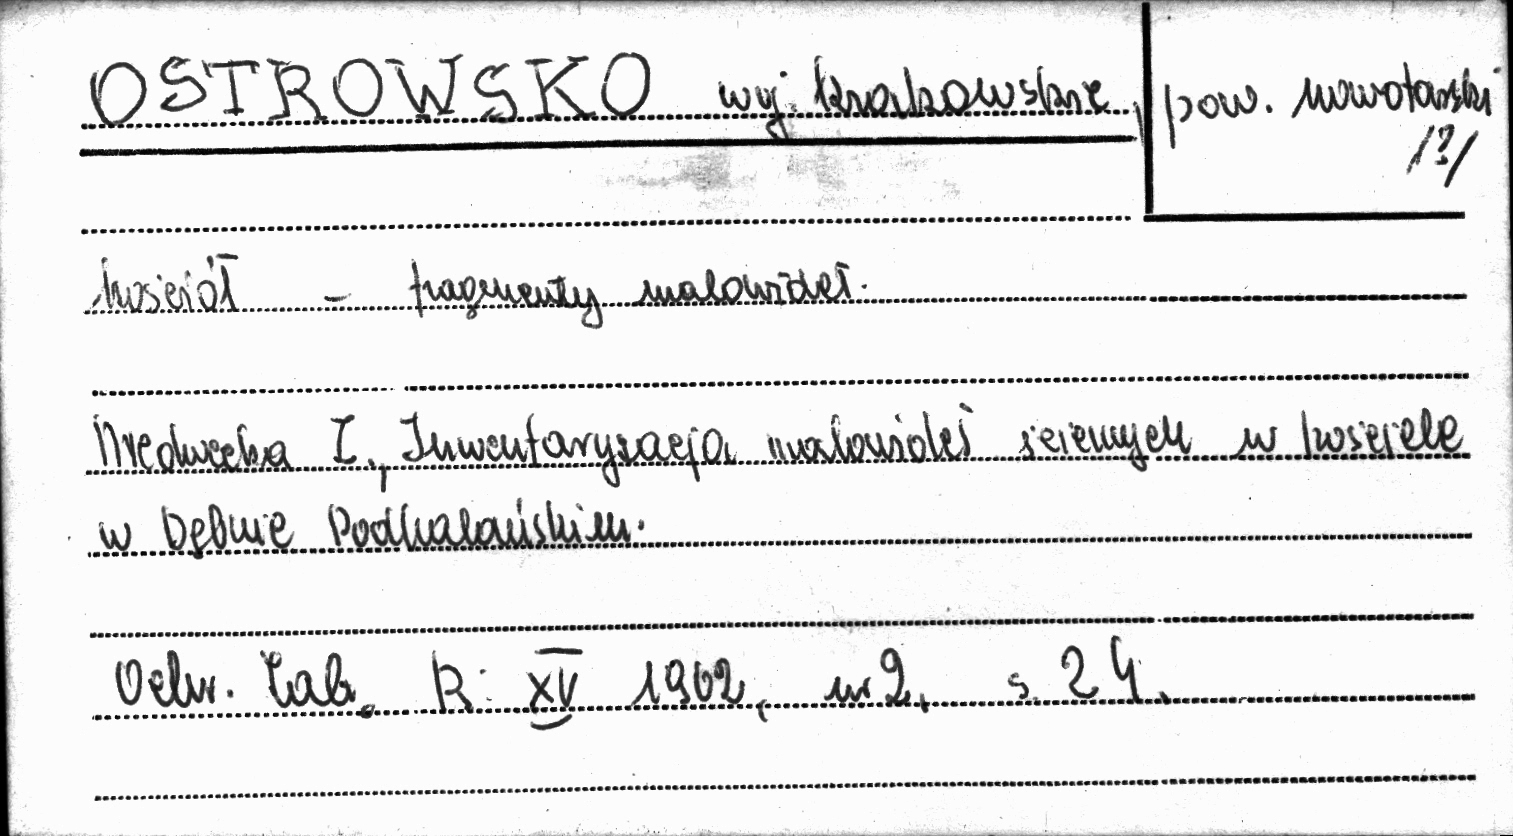 OSTROWSKO woj. krakowskie, pow. nowotarski
/?/
kościół – fragmenty malowideł.
Medwecka I., Inwentaryzacja malowideł ściennych w kościele
w Dębnie Podhalańskim.
Ochr. Zab. R. XV 1962, nr 2, s. 24.